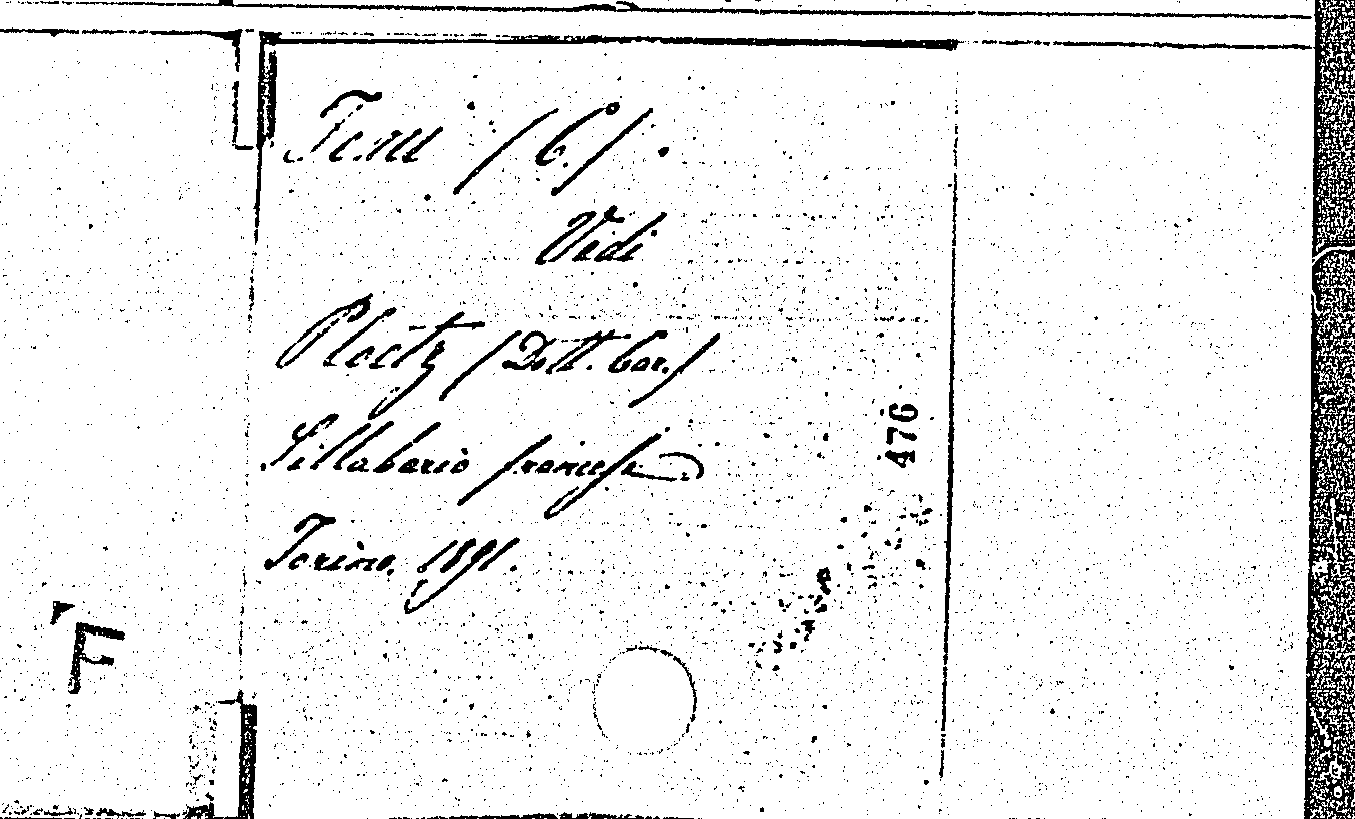 F
Fenu (C.)
Vedi
Ploetz (Dott. Car.)
Sillabario francese.
Torino, 1891.
476